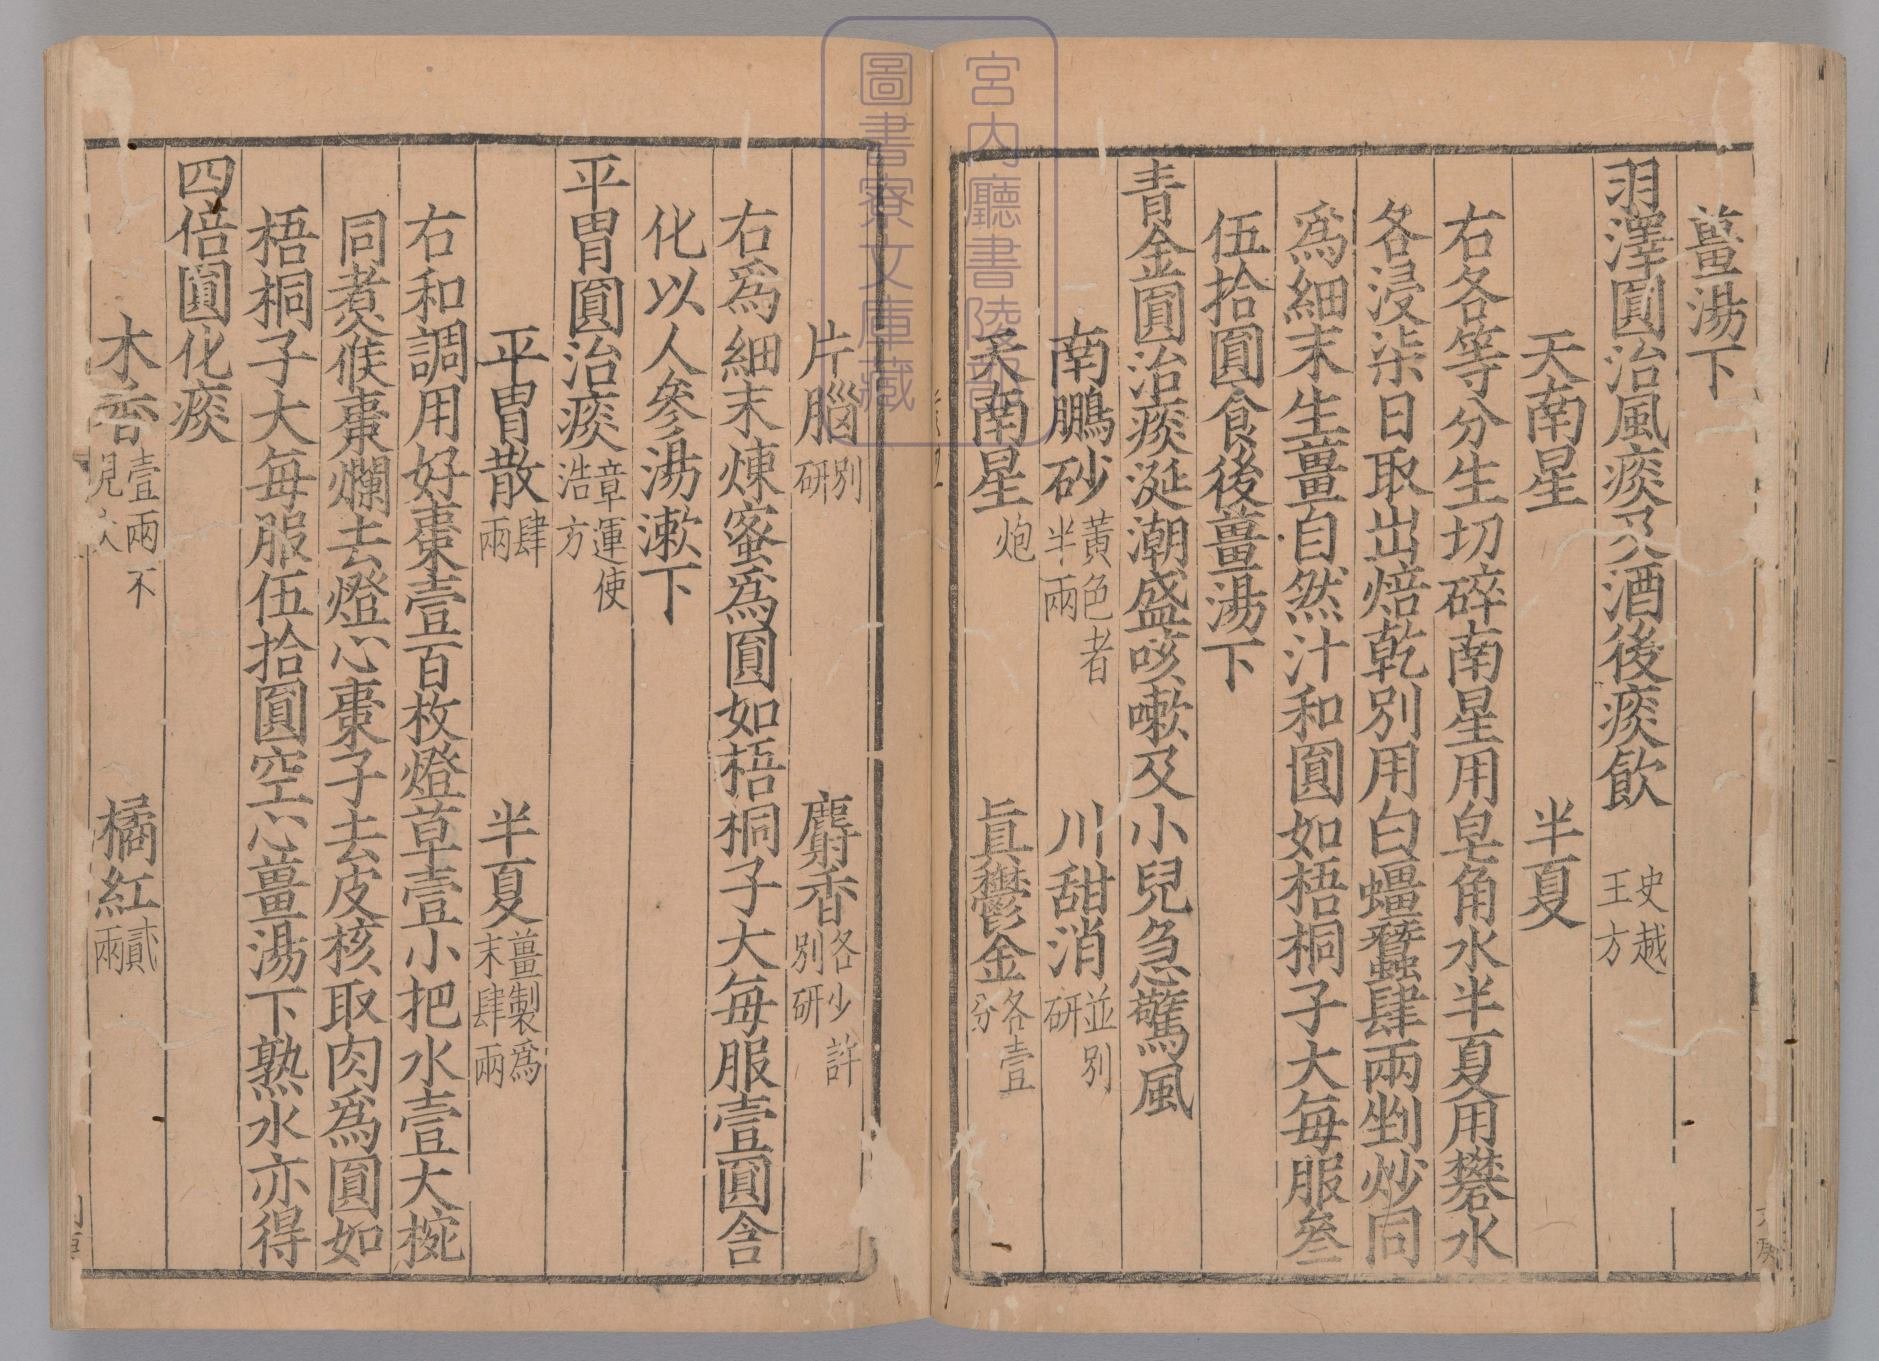 薑湯下
羽澤圓治風痰及酒後痰飲 史越王方
天南星 半夏
右各等分生切碎南星用皂角水半夏用礬水
各浸柒日取出焙乾別用白殭蠶肆兩剉炒同
爲細末生薑自然汁和圓如梧桐子大每服叁
伍拾圓食後薑湯下
青金圓治痰涎潮盛咳嗽及小兒急驚風
南鵬砂黃色者半兩 川甜消並別研
天南星炮 眞鬱金各壹分
片腦別研 麝香各少許別研
右爲細末煉蜜爲圓如梧桐子大每服壹圓含
化以人參湯漱下
平胃圓治痰章運使浩方
平胃散肆兩 半夏薑製爲末肆兩
右和調用好棗壹百枚燈草壹小把水壹大椀
同煮候棗爛去燈心棗子去皮核取肉爲圓如
梧桐子大每服伍拾圓空心薑湯下熟水亦得
四倍圓化痰
木香壹兩不見火 橘紅貳兩
宮内廳書陵部
圖書寮文庫藏